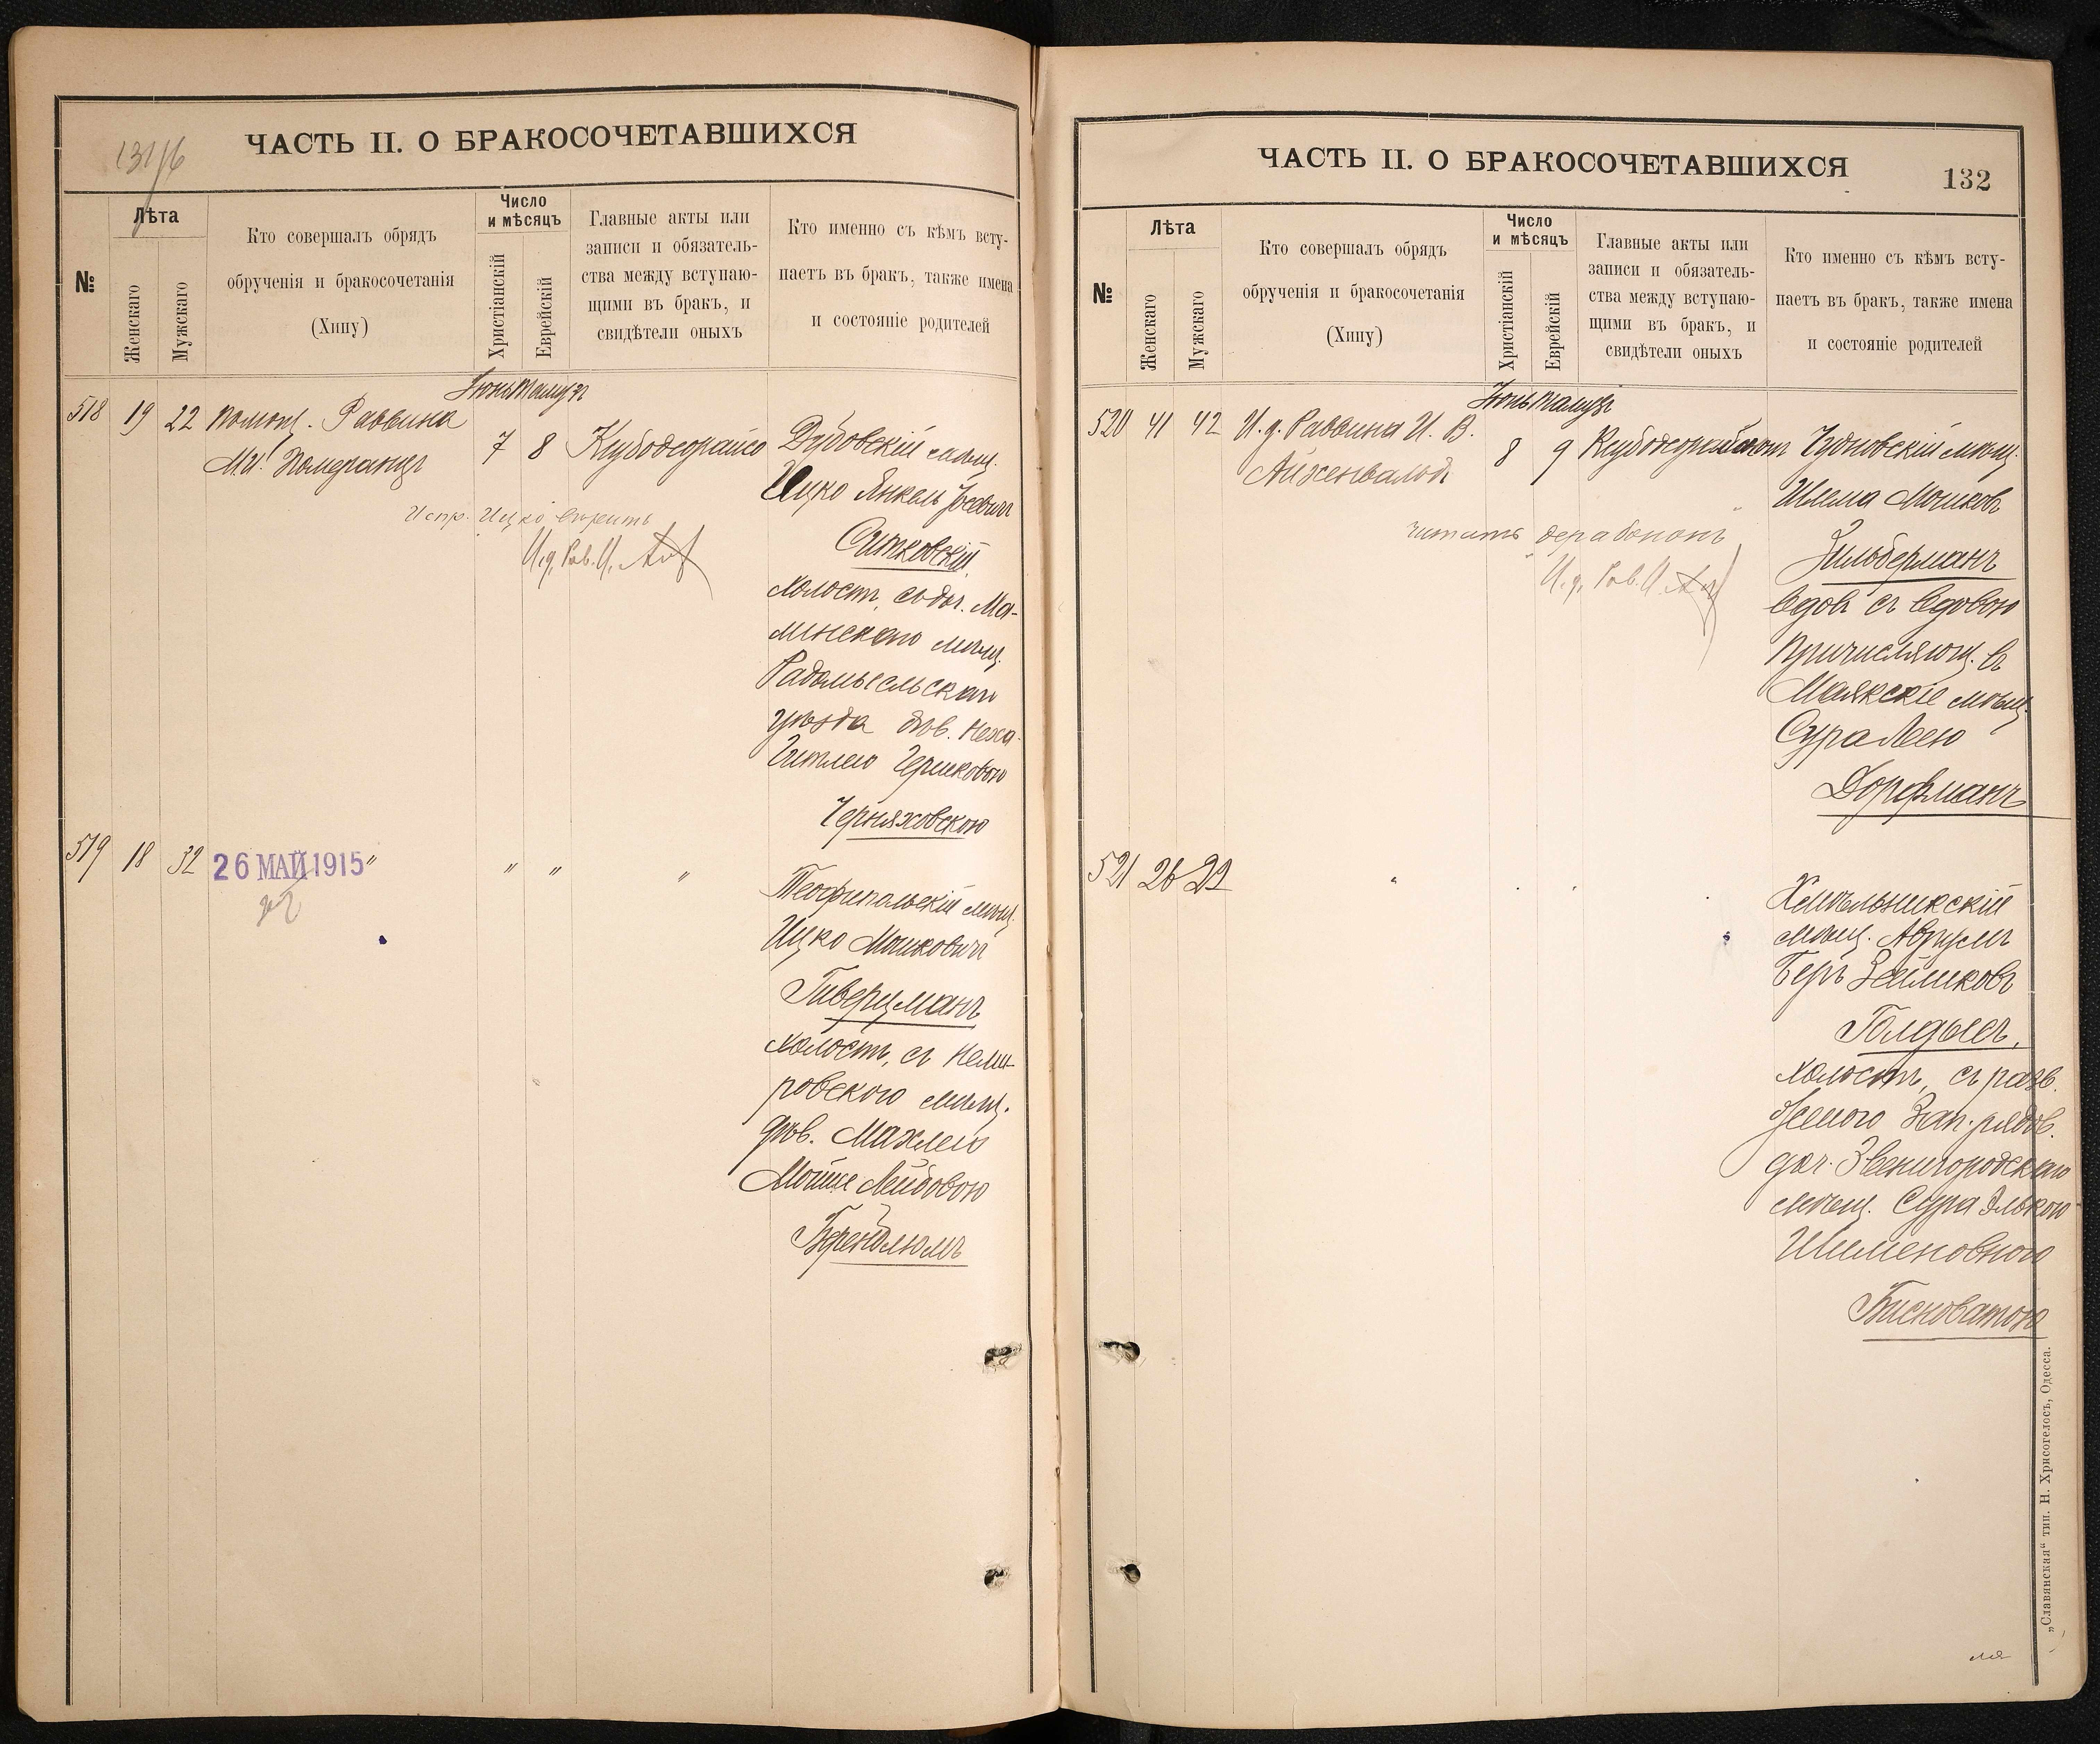 131/б
ЧАСТЬ II. О БРАКОСОЧЕТАВШИХСЯ
№
Лѣта
Женскаго
Мужскаго
Кто совершалъ обрядъ
обрученія и бракосочетанія
(Хипу)
Число
и мѣсяцъ
Христіанскій
Еврейскій
Главные акты или
записи и обязатель-
ства между вступаю-
щими въ бракъ, и
свидѣтели оныхъ
Кто именно съ кѣмъ всту-
паетъ въ бракъ, также имена
и состояніе родителей
Іюнь Тамузъ
518 19 22 Помощ. Раввина
М.И. Померанцъ
7 8
Дубовскій мѣщ.
Ицко Янкель
Ситковскій
холост, съ доч. Ма-
линскаго мѣщ.
Радомысльскаго
уѣзда дѣв. Неха-
Гитлею Гершковою
Черняховскою
Испр. Ицко вѣрить
И.д. Рав. И.
519 18 32 " " " "
26 МАЙ 1915
Теофипольскій мѣщ.
Ицко Мошковичъ
Гиверцманъ
холост, съ Неми-
ровского мѣщ.
дѣв. Махлею
Мойше Лейбовою
ЧАСТЬ II. О БРАКОСОЧЕТАВШИХСЯ
132
№
Лѣта
Женскаго
Мужскаго
Кто совершалъ обрядъ
обрученія и бракосочетанія
(Хипу)
Число
и мѣсяцъ
Христіанскій
Еврейскій
Главные акты или
записи и обязатель-
ства между вступаю-
щими въ бракъ, и
свидѣтели оныхъ
Кто именно съ кѣмъ всту-
паетъ въ бракъ, также имена
и состояніе родителей
Іюнь Тамузъ
520 41 42 И.д. Раввина И. В.
Айхенвальдъ
8 9
Чудновскій мѣщ.
Шлема Мошковъ
Зильберманъ
вдов съ вдовою
причисляющ. въ
Маякскіе мѣщ.
Сура Леею
Дорфманъ
читать дерабононъ
И.д. Рав. И.
521 26 22
Хмѣльникскій
мѣщ. Аврумъ
Беръ Зейликовъ
Голдысъ,
холост, съ разв.
Зап. рядов.
доч. Звенигородскаго
мѣщ. Сура Элькою
Шименовною
Висковатою
„Славянская“ тип. Н. Хрисогелосъ, Одесса.